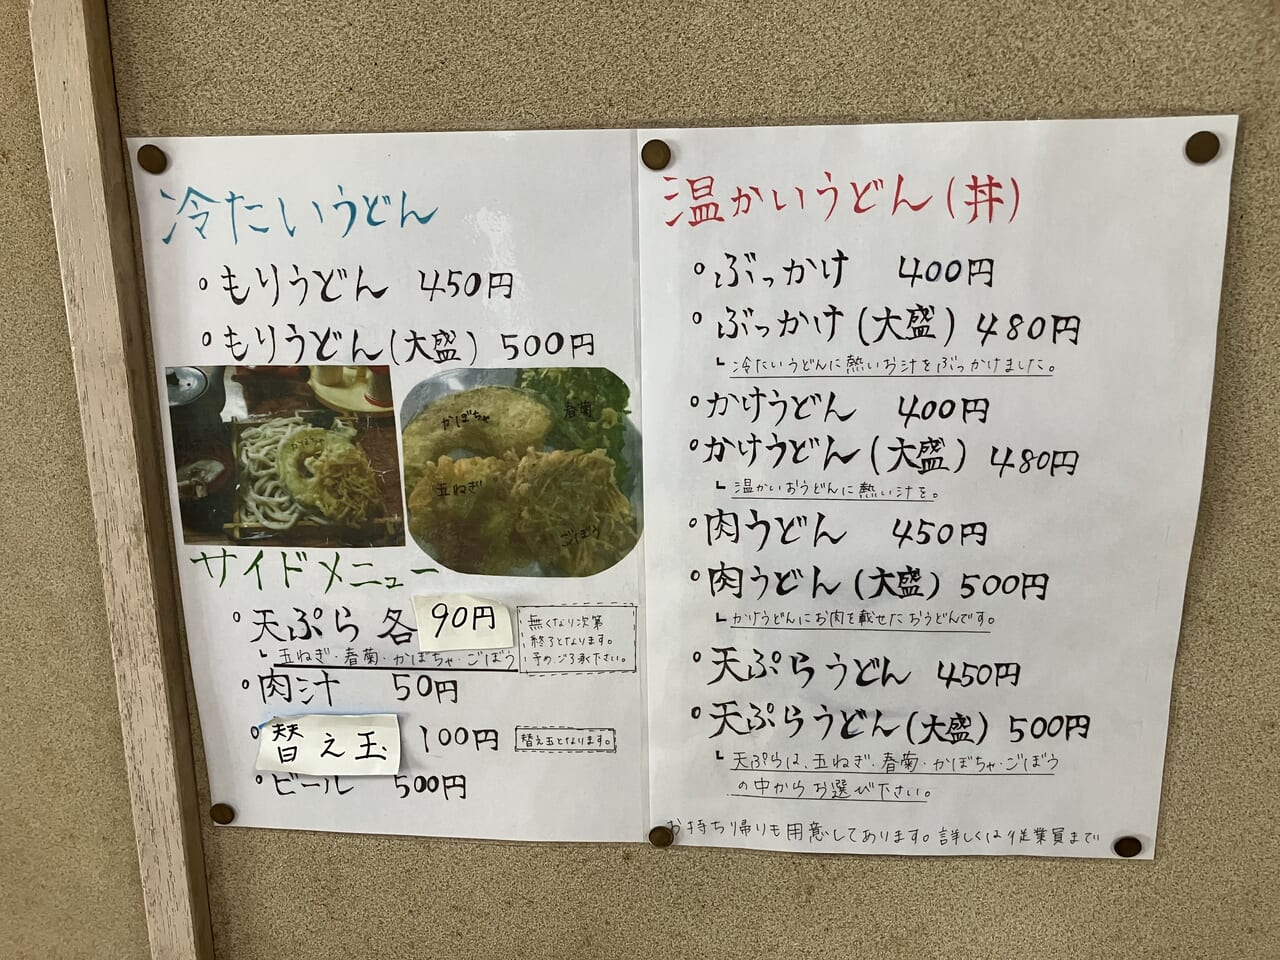 冷たいうどん
・もりうどん 450円
・もりうどん(大盛) 500円
かぼちゃ
かぼちゃ
春菊
玉ねぎ
ごぼう
サイドメニュー
・天ぷら 各 90円
玉ねぎ・春菊・かぼちゃ・ごぼう
無くなり次第
終了となります。
予めご了承下さい。
・肉汁 50円
・替え玉 100円
替え玉となります。
・ビール 500円
温かいうどん(丼)
・ぶっかけ 400円
・ぶっかけ(大盛) 480円
冷たいうどんに熱いお汁をぶっかけました。
・かけうどん 400円
・かけうどん(大盛) 480円
温かいおうどんに熱い汁を。
・肉うどん 450円
・肉うどん(大盛) 500円
かけうどんにお肉を載せたおうどんです。
・天ぷらうどん 450円
・天ぷらうどん(大盛) 500円
天ぷらは、玉ねぎ・春菊・かぼちゃ・ごぼう
の中からお選び下さい。
お持ち帰りも用意してあります。詳しくは従業員まで